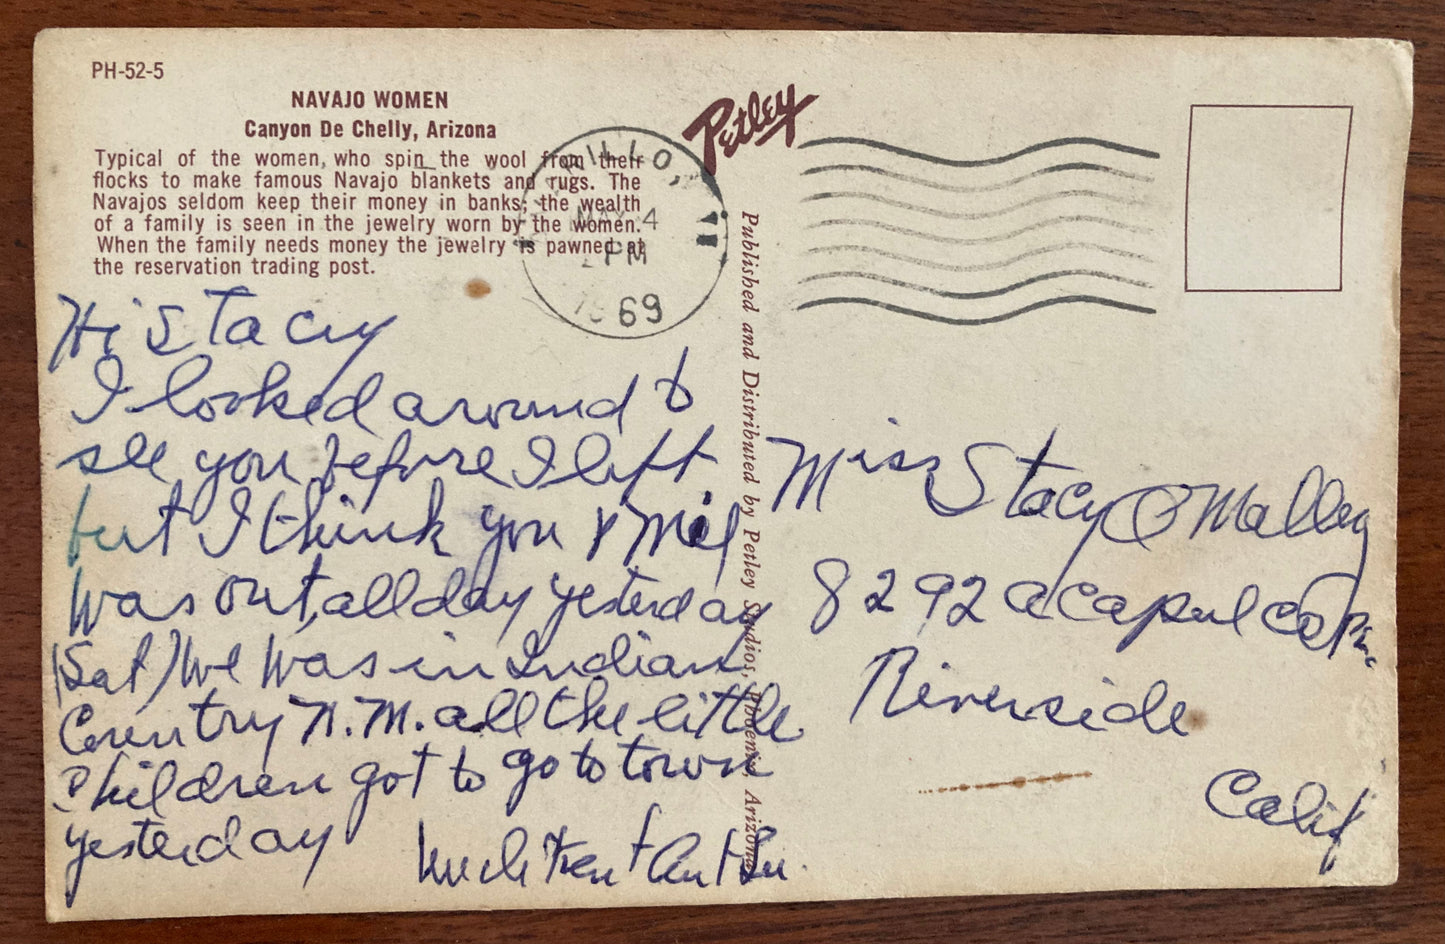 PH-52-5
NAVAJO WOMEN
Canyon De Chelly, Arizona
Typical of the women, who spin the wool from their
flocks to make famous Navajo blankets and rugs. The
Navajos seldom keep their money in banks; the wealth
of a family is seen in the jewelry worn by the women.
When the family needs money the jewelry is pawned at
the reservation trading post.
Petley
MAY 4
PM
1969
Published and Distributed by Petley Studios, Phoenix, Arizona
Hi Stacy
I looked around to
see you before I left
but I think you &
was out, all day yesterday
(Sat) we was in Indian
Country N.M. all the little
children got to go to town
yesterday
Uncle Aunt
Miss Stacy O'Malley
8292 Acapulco
Riverside
Calif